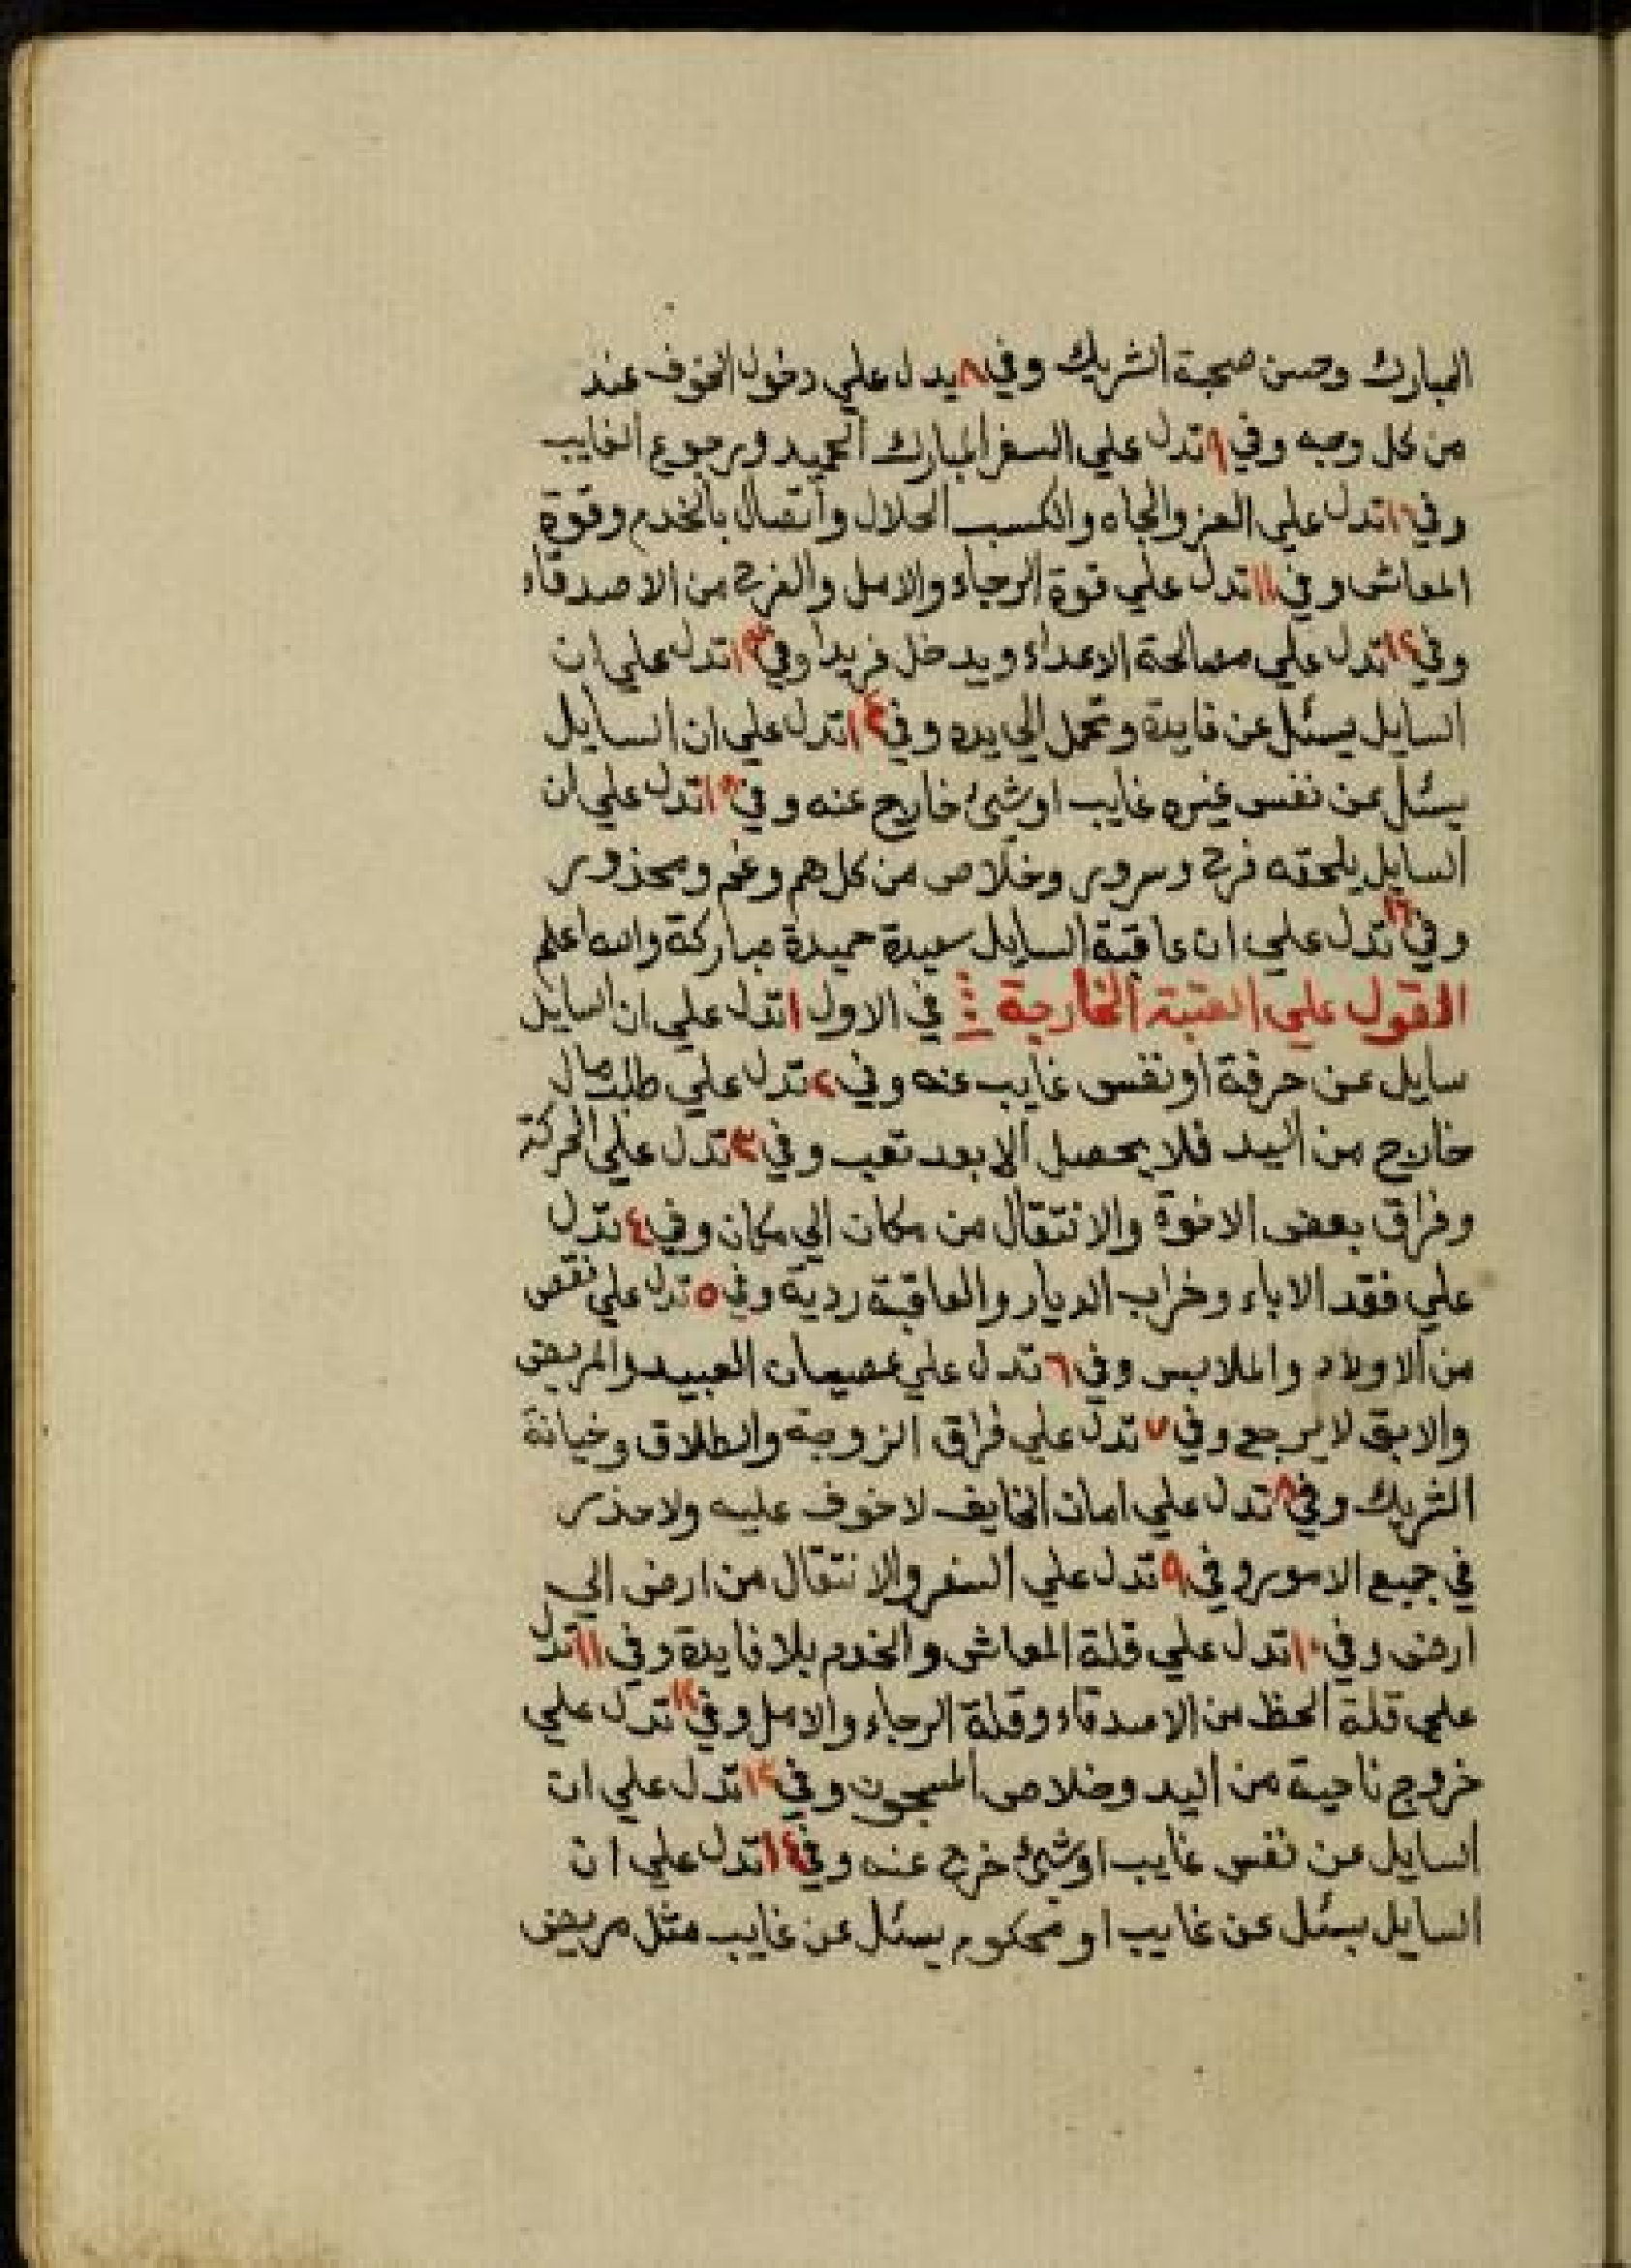 المبارك وحسن صحبة الشريك وفي ٨ يدل علي دخول الخوف عند
من كل وجه وفي ٩ تدل علي السفر المبارك الحميد ورجوع الغايب
وفي ١٠ تدل علي العز والجاه والكسب الحلال وأتصال بالخدم وقوة
المعاش وفي ١١ تدل علي قوة الرجاء والامل والفرح من الاصدقاء
وفي ١٢ تدل علي مصالحة الاعداء ويدخل وفي ١٣ تدل علي ان
السايل يسئل عن فايدة وتحمل الي يده وفي ١٤ تدل علي ان السايل
يسئل عن نفس غيره غايب او شئ خارج عنه وفي ١٥ تدل علي ان
السايل يلحقه فرح وسرور وخلاص من كل هم وغم ومحذور
وفي ١٦ تدل علي ان عاقبة السايل سعيدة حميدة مباركة والله اعلم
القول علي العتبة الخارجة في الاول ١ تدل علي ان السايل
سايل عن حرفة او نفس غايب عنه وفي ٢ تدل علي طلب مال
خارج من اليد فلا يحصل الا بعد تعب وفي ٣ تدل علي الحركة
وفراق بعض الاخوة والانتقال من مكان الي مكان وفي ٤ تدل
علي فقد الاباء وخراب الديار والعاقبة ردية وفي ٥ تدل علي نقص
من الاولاد والملابس وفي ٦ تدل علي عصيان العبيد والمريض
والابق لا يرجع وفي ٧ تدل علي فراق الزوجة والطلاق وخيانة
الشريك وفي ٨ تدل علي امان الخايف لا خوف عليه ولا حذر
في جميع الامور وفي ٩ تدل علي السفر والانتقال من ارض الي
ارض وفي ١٠ تدل علي قلة المعاش والخدم بلا فايدة وفي ١١ تدل
علي قلة الحظ من الاصدقاء وقلة الرجاء والامل وفي ١٢ تدل علي
خروج ناحية من اليد وخلاص المسجون وفي ١٣ تدل علي ان
السايل عن نفس غايب او شئ خرج عنه وفي ١٤ تدل علي ان
السايل يسئل عن غايب او محكوم يسئل عن غايب مثل مريض